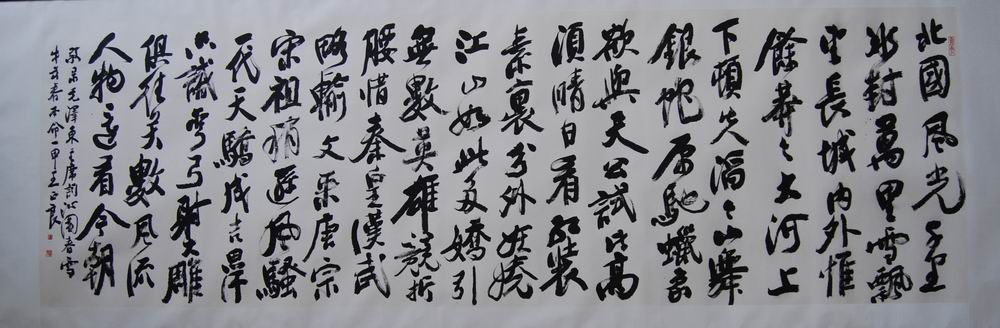 北國風光千里
冰封萬里雪飄
望長城內外惟
餘莽々大河上
下頓失滔々山舞
銀蛇原馳蠟象
欲與天公試比高
須晴日看紅裝
素裹分外妖嬈
江山如此多嬌引
無數英雄競折
腰惜秦皇漢武
略輸文采唐宗
宋祖稍遜風騷
一代天驕成吉汗
只識彎弓射大雕
俱往矣數風流
人物還看今朝
敬录毛澤東主席詞沁園春雪
牛年春一甲王正良